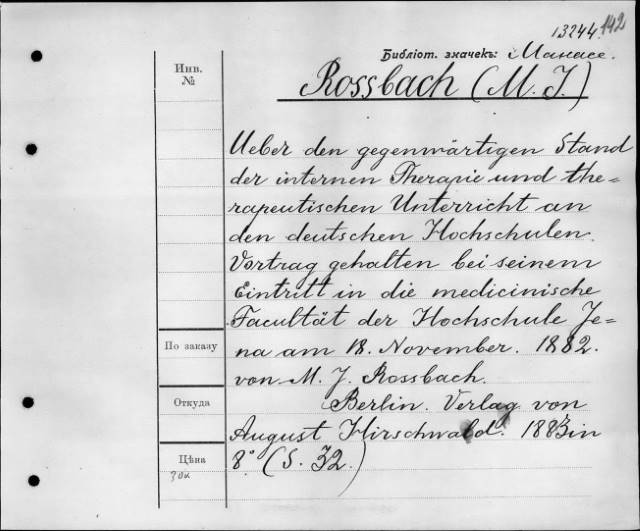 13244.142
Библіот. значекъ: Манасе.
Инв.
№
Rossbach (M. J.)
Ueber den gegenwärtigen Stand
der internen Therapie und the=
rapeutischen Unterricht an
den deutschen Hochschulen.
Vortrag gehalten bei seinem
Eintritt in die medicinische
Facultät der Hochschule Je=
na am 18. November. 1882.
По заказу
von M. J. Rossbach.
Откуда
Berlin. Verlag von
August Hirschwald. 1883 in
Цѣна
8° (S. 32.)